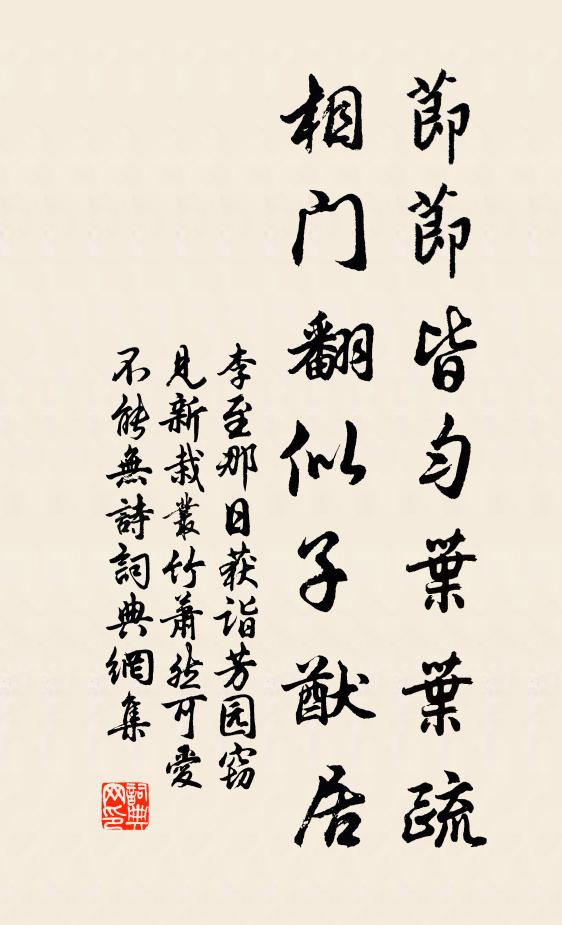 節節皆勻葉葉疏
相门翻似子猷居
李至那日获诣芳园窃
見新栽叢竹蕭然可愛
不能無詩詞典網集
詞典
网印